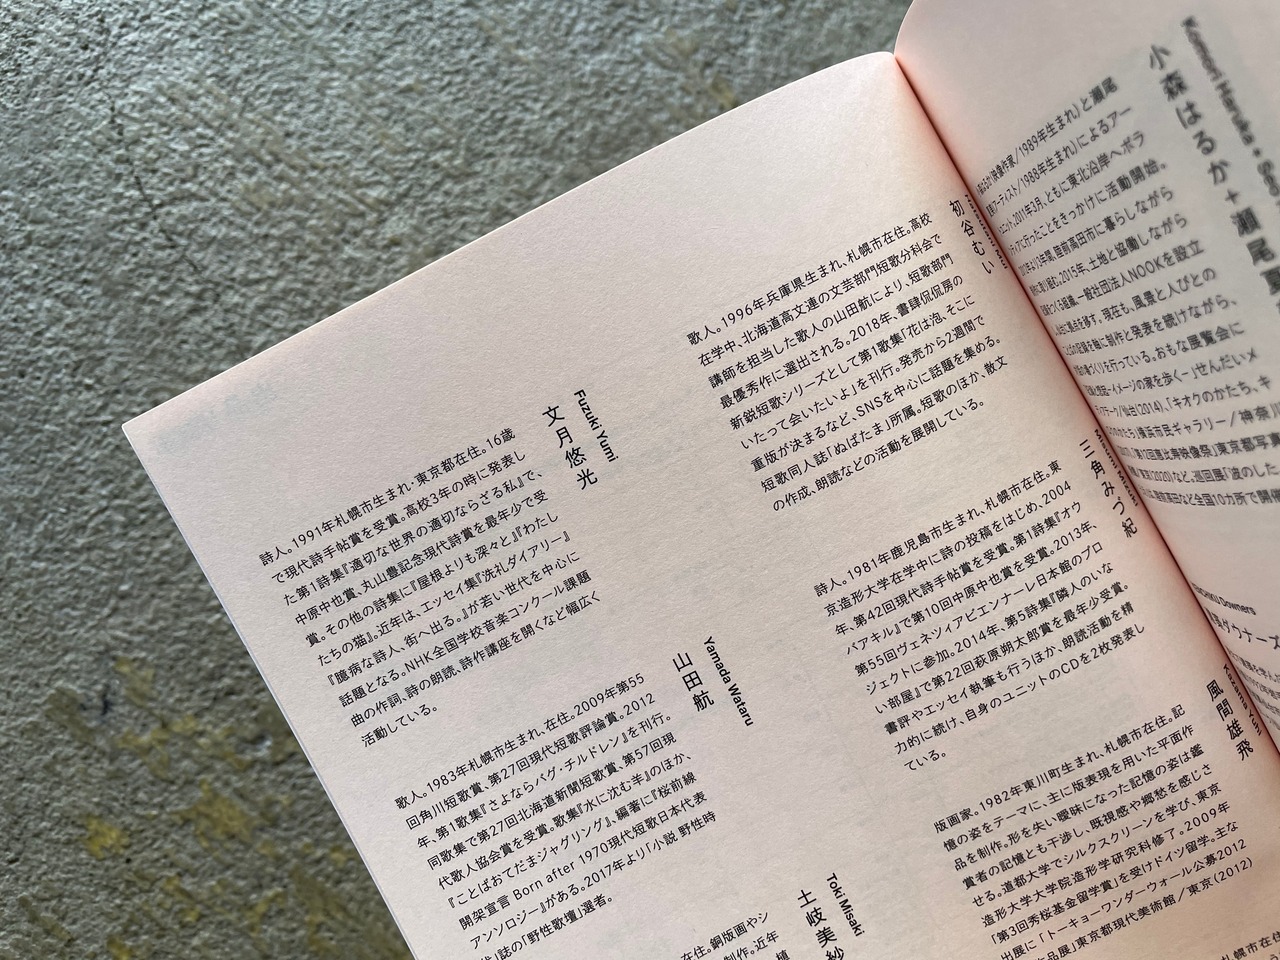 文月悠光
Fuzuki Yumi
詩人。1991年札幌市生まれ・東京都在住。16歳
で現代詩手帖賞を受賞。高校3年の時に発表し
た第1詩集『適切な世界の適切ならざる私』で、
中原中也賞、丸山豊記念現代詩賞を最年少で受
賞。その他の詩集に『屋根よりも深々と』『わたし
たちの猫』。近年は、エッセイ集『洗礼ダイアリー』
『臆病な詩人、街へ出る。』が若い世代を中心に
話題となる。NHK全国学校音楽コンクール課題
曲の作詞、詩の朗読、詩作講座を開くなど幅広く
活動している。
山田航
Yamada Wataru
歌人。1983年札幌市生まれ、在住。2009年第55
回角川短歌賞、第27回現代短歌評論賞。2012
年、第1歌集『さよならバグ・チルドレン』を刊行。
同歌集で第27回北海道新聞短歌賞、第57回現
代歌人協会賞を受賞。歌集『水に沈む羊』のほか、
『ことばおてだまジャグリング』、編著に『桜前線
開架宣言 Born after 1970 現代短歌日本代表
アンソロジー』がある。2017年より「小説 野性時
代」誌の「野性歌壇」選者。
土岐美紗
Toki Misaki
在住。銅版画やシ
制作。近年
初谷むい
歌人。1996年兵庫県生まれ、札幌市在住。高校
在学中、北海道高文連の文芸部門短歌分科会で
講師を担当した歌人の山田航により、短歌部門
最優秀作に選出される。2018年、書肆侃侃房の
新鋭短歌シリーズとして第1歌集『花は泡、そこに
いたって会いたいよ』を刊行。発売から2週間で
重版が決まるなど、SNSを中心に話題を集める。
短歌同人誌「ぬばたま」所属。短歌のほか、散文
の作成、朗読などの活動を展開している。
三角みづ紀
詩人。1981年鹿児島市生まれ、札幌市在住。東
京造形大学在学中に詩の投稿をはじめ、2004
年、第42回現代詩手帖賞を受賞。第1詩集『オウ
バアキル』で第10回中原中也賞を受賞。2013年、
第55回ヴェネツィアビエンナーレ日本館のプロ
ジェクトに参加。2014年、第5詩集『隣人のいな
い部屋』で第22回萩原朔太郎賞を最年少受賞。
書評やエッセイ執筆も行うほか、朗読活動を精
力的に続け、自身のユニットのCDを2枚発表し
ている。
風間雄飛
版画家。1982年東川町生まれ、札幌市在住。記
憶の姿をテーマに、主に版表現を用いた平面作
品を制作。形を失い曖昧になった記憶の姿は鑑
賞者の記憶とも干渉し、既視感や郷愁を感じさ
せる。道都大学でシルクスクリーンを学び、東京
造形大学大学院造形学研究科修了。2009年
「第3回秀桜基金留学賞」を受けドイツ留学。主な
出展に「トーキョーワンダーウォール公募2012
作品展」東京都現代美術館／東京(2012)
札幌市在住
小森はるか＋瀬尾
映像作家/1989年生まれ)と瀬尾
アーティスト/1988年生まれ)によるアー
ユニット。2011年3月、ともに東北沿岸へボラ
ティアに行ったことをきっかけに活動開始。
陸前高田市に暮らしながら
に取り組む。2015年、土地と協働しながら
をつくる組織、一般社団法人NOOKを設立
に拠点を移す。現在も、風景と人びとの
ことばの記録を軸に制作と発表を続けながら、
場づくりを行っている。おもな展覧会に
イメージの家を歩く―」せんだいメ
ディアテーク/仙台(2014)、「キオクのかたち、キ
横浜市民ギャラリー/神奈川
恵比寿映像祭」東京都写真
東京(2020)など。巡回展「波のした、
陸前高田など全国10カ所で開催
Downers
ダウナーズ